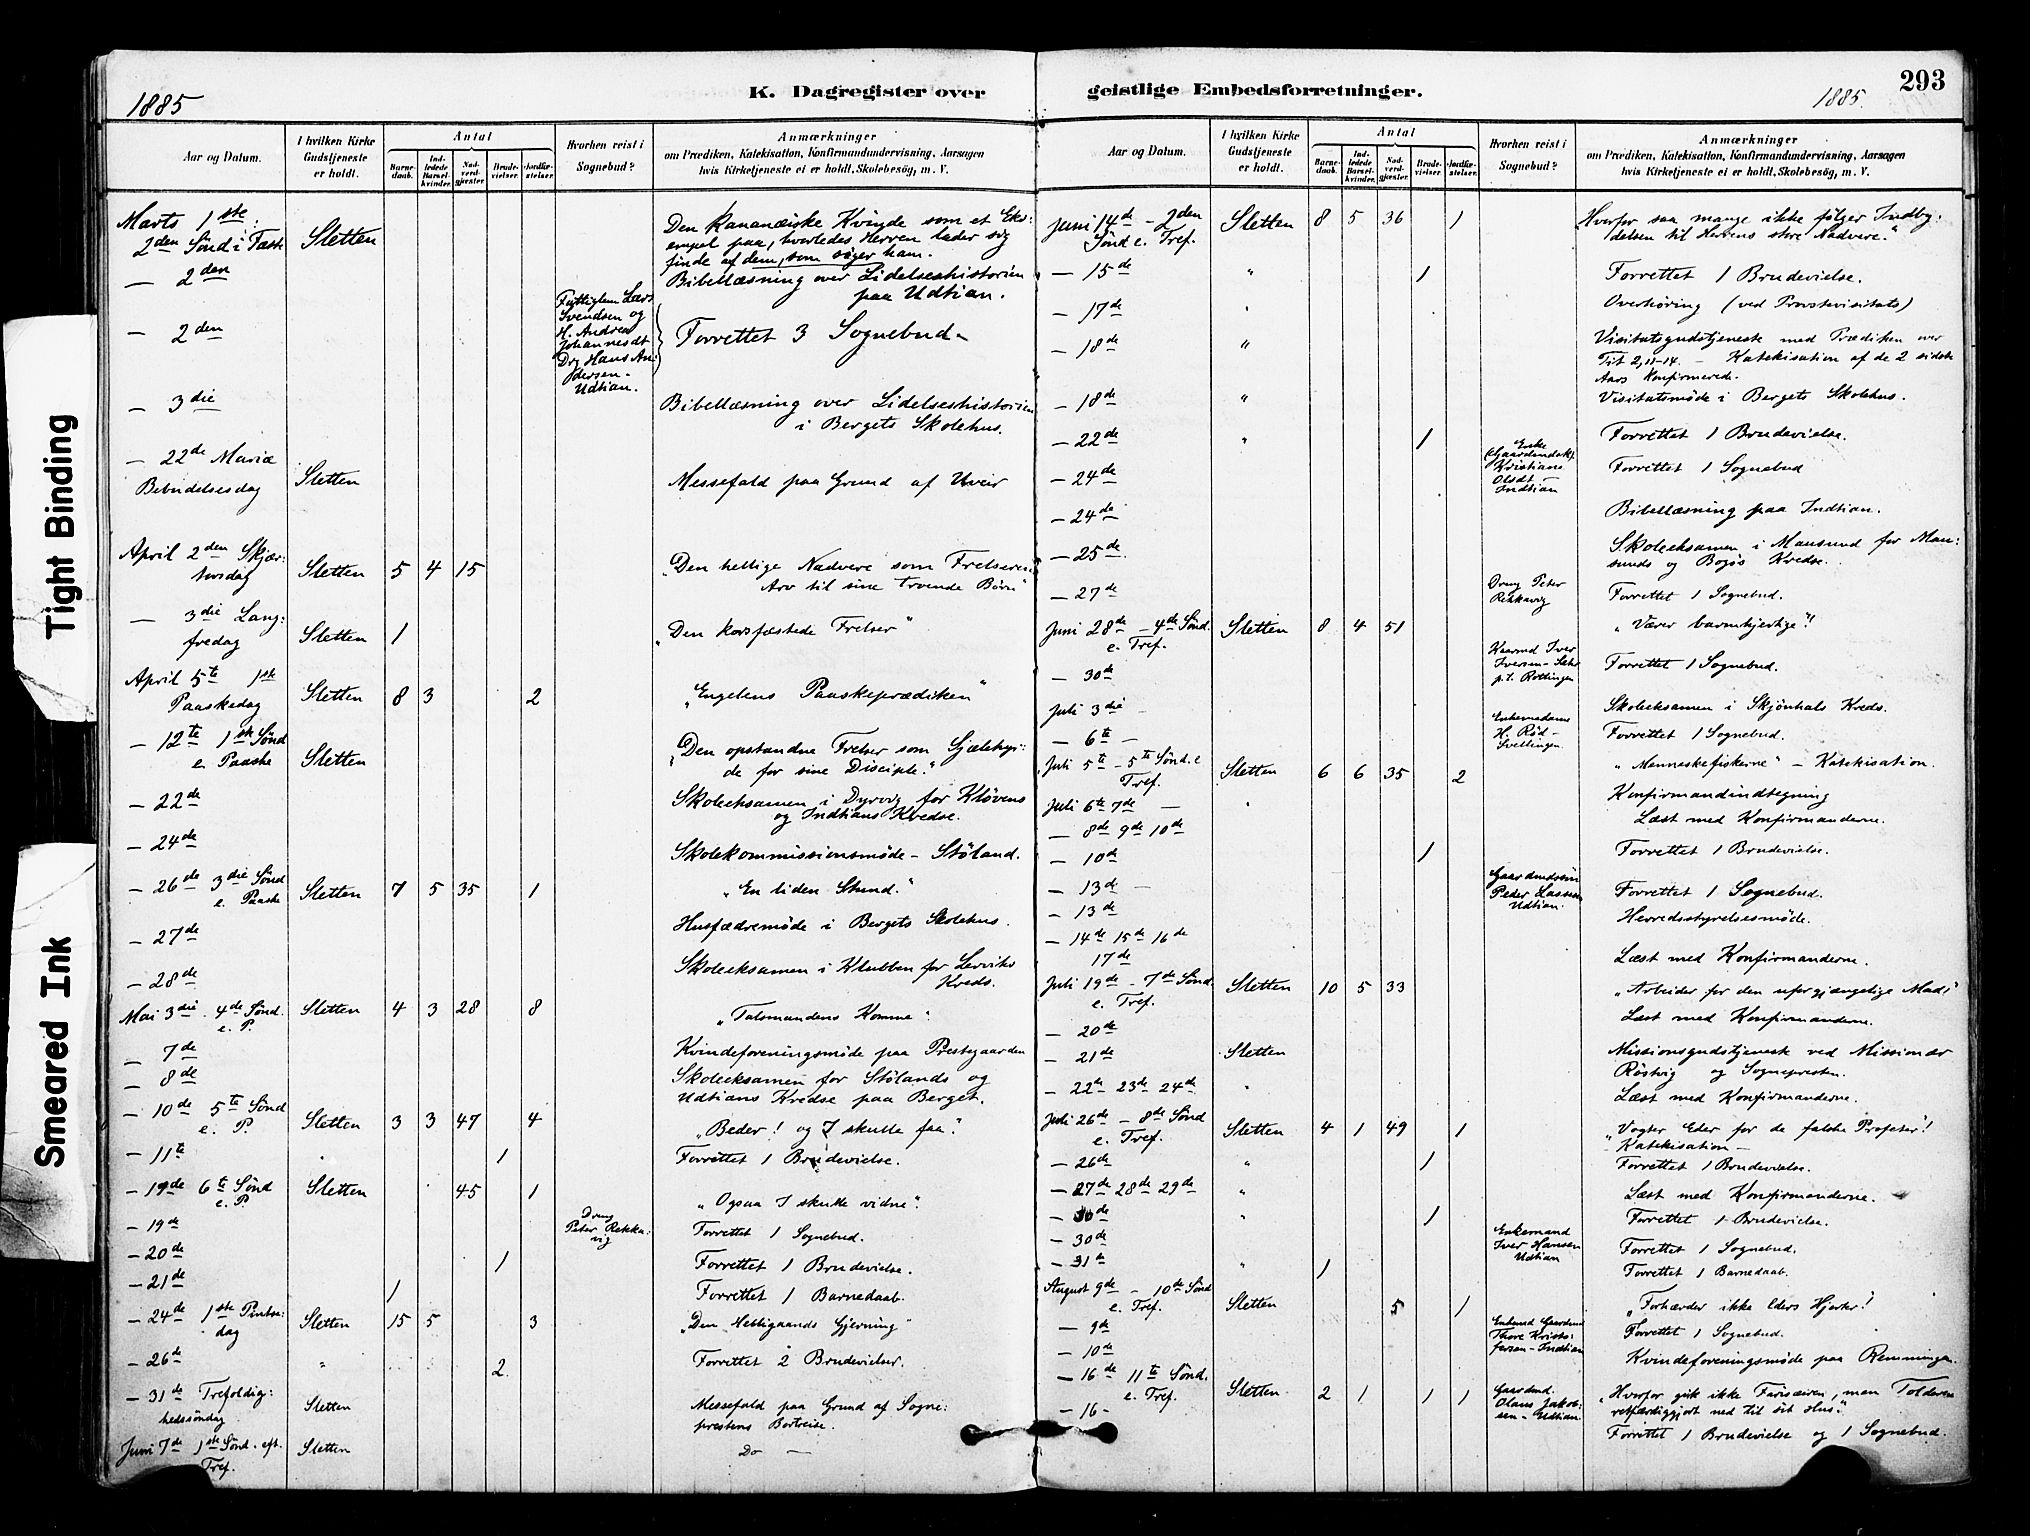 Tight Binding
Smeared Ink
1885
K. Dagregister over
Aar og Datum.
I hvilken Kirke Gudstjeneste er holdt.
Antal
Barnedaab.
Indledede Barselkvinder.
Nadverdgjæster.
Brudevielser.
Jordfæstelser.
Hvorhen reist i Sognebud?
Anmærkninger
om Prædiken, Katekisation, Konfirmandundervisning, Aarsagen
hvis Kirketjeneste ei er holdt, Skolebesøg, m. V.
Marts 1ste
2den Sønd i Fast. Sletten Den kananæiske Kvinde som et Eks-
empel paa, hvorledes Herren lader sig
finde af dem, som søger ham.
— 2den Bibellæsning over Lidelseshistorien
paa Udtian.
— 2den Lars Svendsen og
H. Andrea
Johannesdt
Drg Hans An-
dersen-
Udtian. Forrettet 3 Sognebud.
— 3die Bibellæsning over Lidelseshistorien
i Bergets Skolehus.
— 22de Mariæ
Bebudelsesdag Sletten Messefald paa Grund af Uveir
April 2den Skjær:
torsdag Sletten 5 4 15 "Den hellige Nadvere som Frelserens
Arv til sine troende Børn"
— 3die Lang:
fredag Sletten 1 "Den korsfæstede Frelser"
April 5te 1ste
Paaskedag Sletten 8 3 2 "Engelens Paaskeprædiken"
— 12te 1ste Sønd
e. Paaske Sletten "Den opstandne Frelser som Sjælehyr:
de for sine Disciple."
— 22de Skoleeksamen i Dyrvig for Kløvens
og Indtians Kredse.
— 24de Skolekommissionsmøde - Støland.
— 26de 3die Sønd
e. Paaske Sletten 7 5 35 1 "En liden Stund."
— 27de Husfædremøde i Bergets Skolehus.
— 28de Skoleeksamen i Klubben for Lervik
Kreds.
Mai 3die 4de Sønd.
e. P. Sletten 4 3 28 8 "Talsmandens Komme"
— 7de Kvindeforeningsmøde paa Prestegaarden
— 8de Skoleeksamen for Stølands og
Udtians Kredse paa Berget.
— 10de 5te Sønd
e. P. Sletten 3 3 47 4 "Beder! og I skulle faa."
— 11te " 1 Forrettet 1 Brudevielse.
— 19de 6te Sønd
e. P. Sletten 45 1 "Ogsaa I skulle vidne."
— 19de Dreng
Peter Rekka:
vig Forrettet 1 Sognebud.
— 20de 1 Forrettet 1 Brudevielse.
— 21de 1 Forrettet 1 Barnedaab.
— 24de 1ste Pintse:
dag Sletten 15 5 3 "Den Helligaands Gjerning"
— 26de " 2 Forrettet 2 Brudevielser.
— 31de Trefoldig:
hedssøndag Sletten Messefald paa Grund af Sogne:
prestens Bortreise.
Juni 7de 1ste Sønd. eft.
Tref. Sletten Do —
geistlige Embedsforretninger.
1885.
293
Aar og Datum.
I hvilken Kirke Gudstjeneste er holdt.
Antal
Barnedaab.
Indledede Barselkvinder.
Nadverdgjæster.
Brudevielser.
Jordfæstelser.
Hvorhen reist i Sognebud?
Anmærkninger
om Prædiken, Katekisation, Konfirmandundervisning, Aarsagen
hvis Kirketjeneste ei er holdt, Skolebesøg, m. V.
Juni 14de - 2den
Sønd e. Tref. Sletten 8 5 36 1 Hvorfor saa mange ikke følger Indby:
delsen til Herrens store Nadvere."
— 15de " 1 Forrettet 1 Brudevielse.
— 17de " Overhøring (ved Provstevisitats)
— 18de " Visitatsgudstjeneste med Prædiken over
Tit 2,11-14. - Katekisation af de 2 sidste
Aars Konfirmerede.
— 18de " Visitatsmøde i Bergets Skolehus.
— 22de " 1 Forrettet 1 Brudevielse.
— 24de Enke
Kristiane
Olsdt -
Indtian Forrettet 1 Sognebud
— 24de Bibellæsning paa Indtian.
— 25de. Skoleeksamen i Mausund for Mau:
sunds og Bogøs Kredse.
— 27de Dreng Peter
Rekkavig Forrettet 1 Sognebud.
Juni 28de - 4de Sønd.
e. Tref. Sletten 8 4 51 "Værer barmhjertige"!
— 30de Iver
Iversen
Forrettet 1 Sognebud.
Juli 3die - Skoleeksamen i Skjønhals Kreds.
— 6te — Enkemadame
H. Rød -
Svellingen. Forrettet 1 Sognebud.
Juli 5te - 5te Sønd. e
Tref. Sletten 6 6 35 2 "Menneskefiskerne" - Katekisation.
Juli 6te 7de — " Konfirmandindtegning
— 8de 9de 10de Læst med Konfirmanderne.
— 10de 1 Forrettet 1 Brudevielse.
— 13de — Peder Lassen
Udtian. Forrettet 1 Sognebud.
— 13de Herredsstyrelsesmøde.
— 14de 15de 16de
17de Læst med Konfirmanderne.
Juli 19de - 7de Sønd.
e. Tref. Sletten 10 5 33 "Arbeider for den uforgjængelige Mad!"
— 20de Læst med Konfirmanderne.
— 21de Sletten Missionsgudstjeneste ved Missionær
Røstvig og Sognepresten.
— 22de 23de 24de " Læst med Konfirmanderne.
Juli 26de - 8de Sønd
e. Tref. Sletten 4 1 49 1 "Vogter Eder for de falske Profeter!"
Katekisation -
— 26de " 1 Forrettet 1 Brudevielse.
— 27de 28de 29de " Læst med Konfirmanderne.
— 30de " 1 Forrettet 1 Brudevielse.
— 30de Enkemand
Iver Hansen
Udtian Forrettet 1 Sognebud.
— 31te " 1 Forrettet 1 Barnedaab.
August 9de - 10de Sønd
e. Tref. Sletten 5 1 "Forhærder ikke Eders Hjerter!"
— 9de Enkemd Gaardmd
Thore Kristo:
fersen - Indtian Forrettet 1 Sognebud.
— 10de Kvindeforeningsmøde paa Remmingen.
— 16de 11te Sønd.
e. Tref. Sletten 2 1 1 1 "Hvorfor gik ikke Farisæeren, men Tolderen
retfærdiggjort ned til sit Hus."
— 16 - Gaardmd.
Olaus Jakob:
sen - Udtian Forrettet 1 Brudevielse og 1 Sognebud.